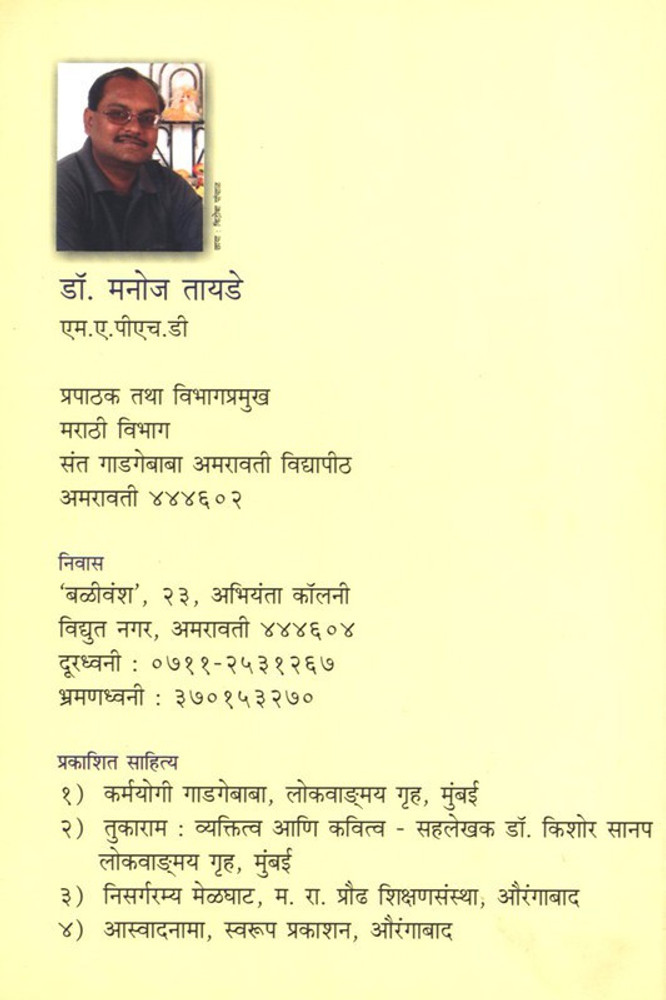 डॉ. मनोज तायडे
एम.ए.पीएच.डी
प्रपाठक तथा विभागप्रमुख
मराठी विभाग
संत गाडगेबाबा अमरावती विद्यापीठ
अमरावती ४४४६०२
निवास
‘बळीवंश’, २३, अभियंता कॉलनी
विद्युत नगर, अमरावती ४४४६०४
दूरध्वनी : ०७११-२५३१२६७
भ्रमणध्वनी : ३७०१५३२७०
प्रकाशित साहित्य
१) कर्मयोगी गाडगेबाबा, लोकवाङ्मय गृह, मुंबई
२) तुकाराम : व्यक्तित्व आणि कवित्व - सहलेखक डॉ. किशोर सानप
लोकवाङ्मय गृह, मुंबई
३) निसर्गरम्य मेळघाट, म. रा. प्रौढ शिक्षणसंस्था, औरंगाबाद
४) आस्वादनामा, स्वरूप प्रकाशन, औरंगाबाद